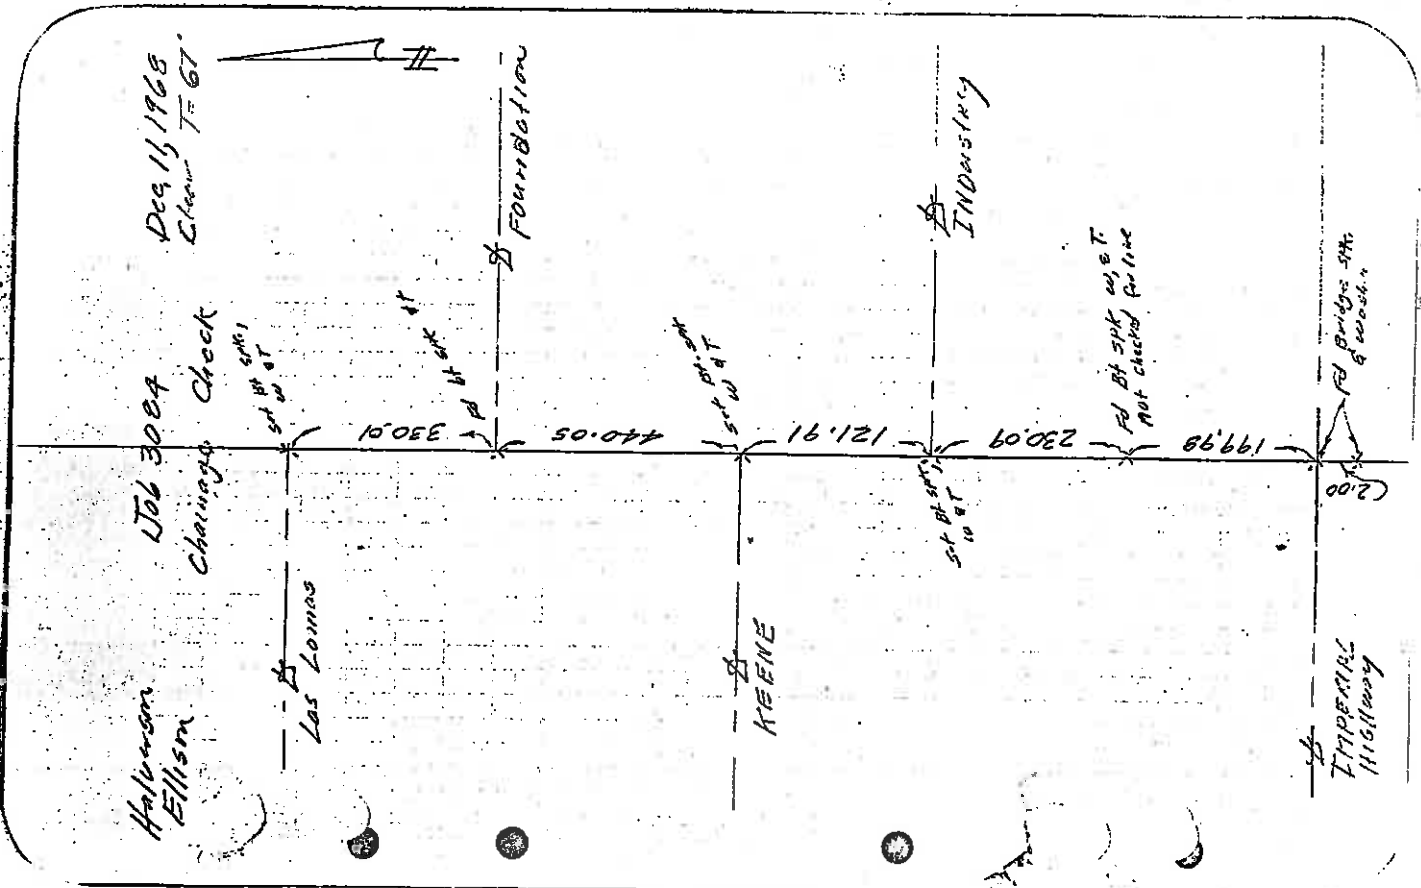 Halverson
Ellison
Job 3084
Chainage Check
Dec, 11, 1968
Clear T=67°
N
Las Lomas
set Bt spk,
w & T
330.01
Fd bt spk & T
Foundation
440.05
set Bt. spk
w & T
KEENE
121.91
Set Bt spk.
w & T
INDustry
230.09
Fd Bt SPK w, & T.
Not checked for line
199.98
Fd Bridge spk.
& wash.
(2.00
IMPERIAL
HIGHway